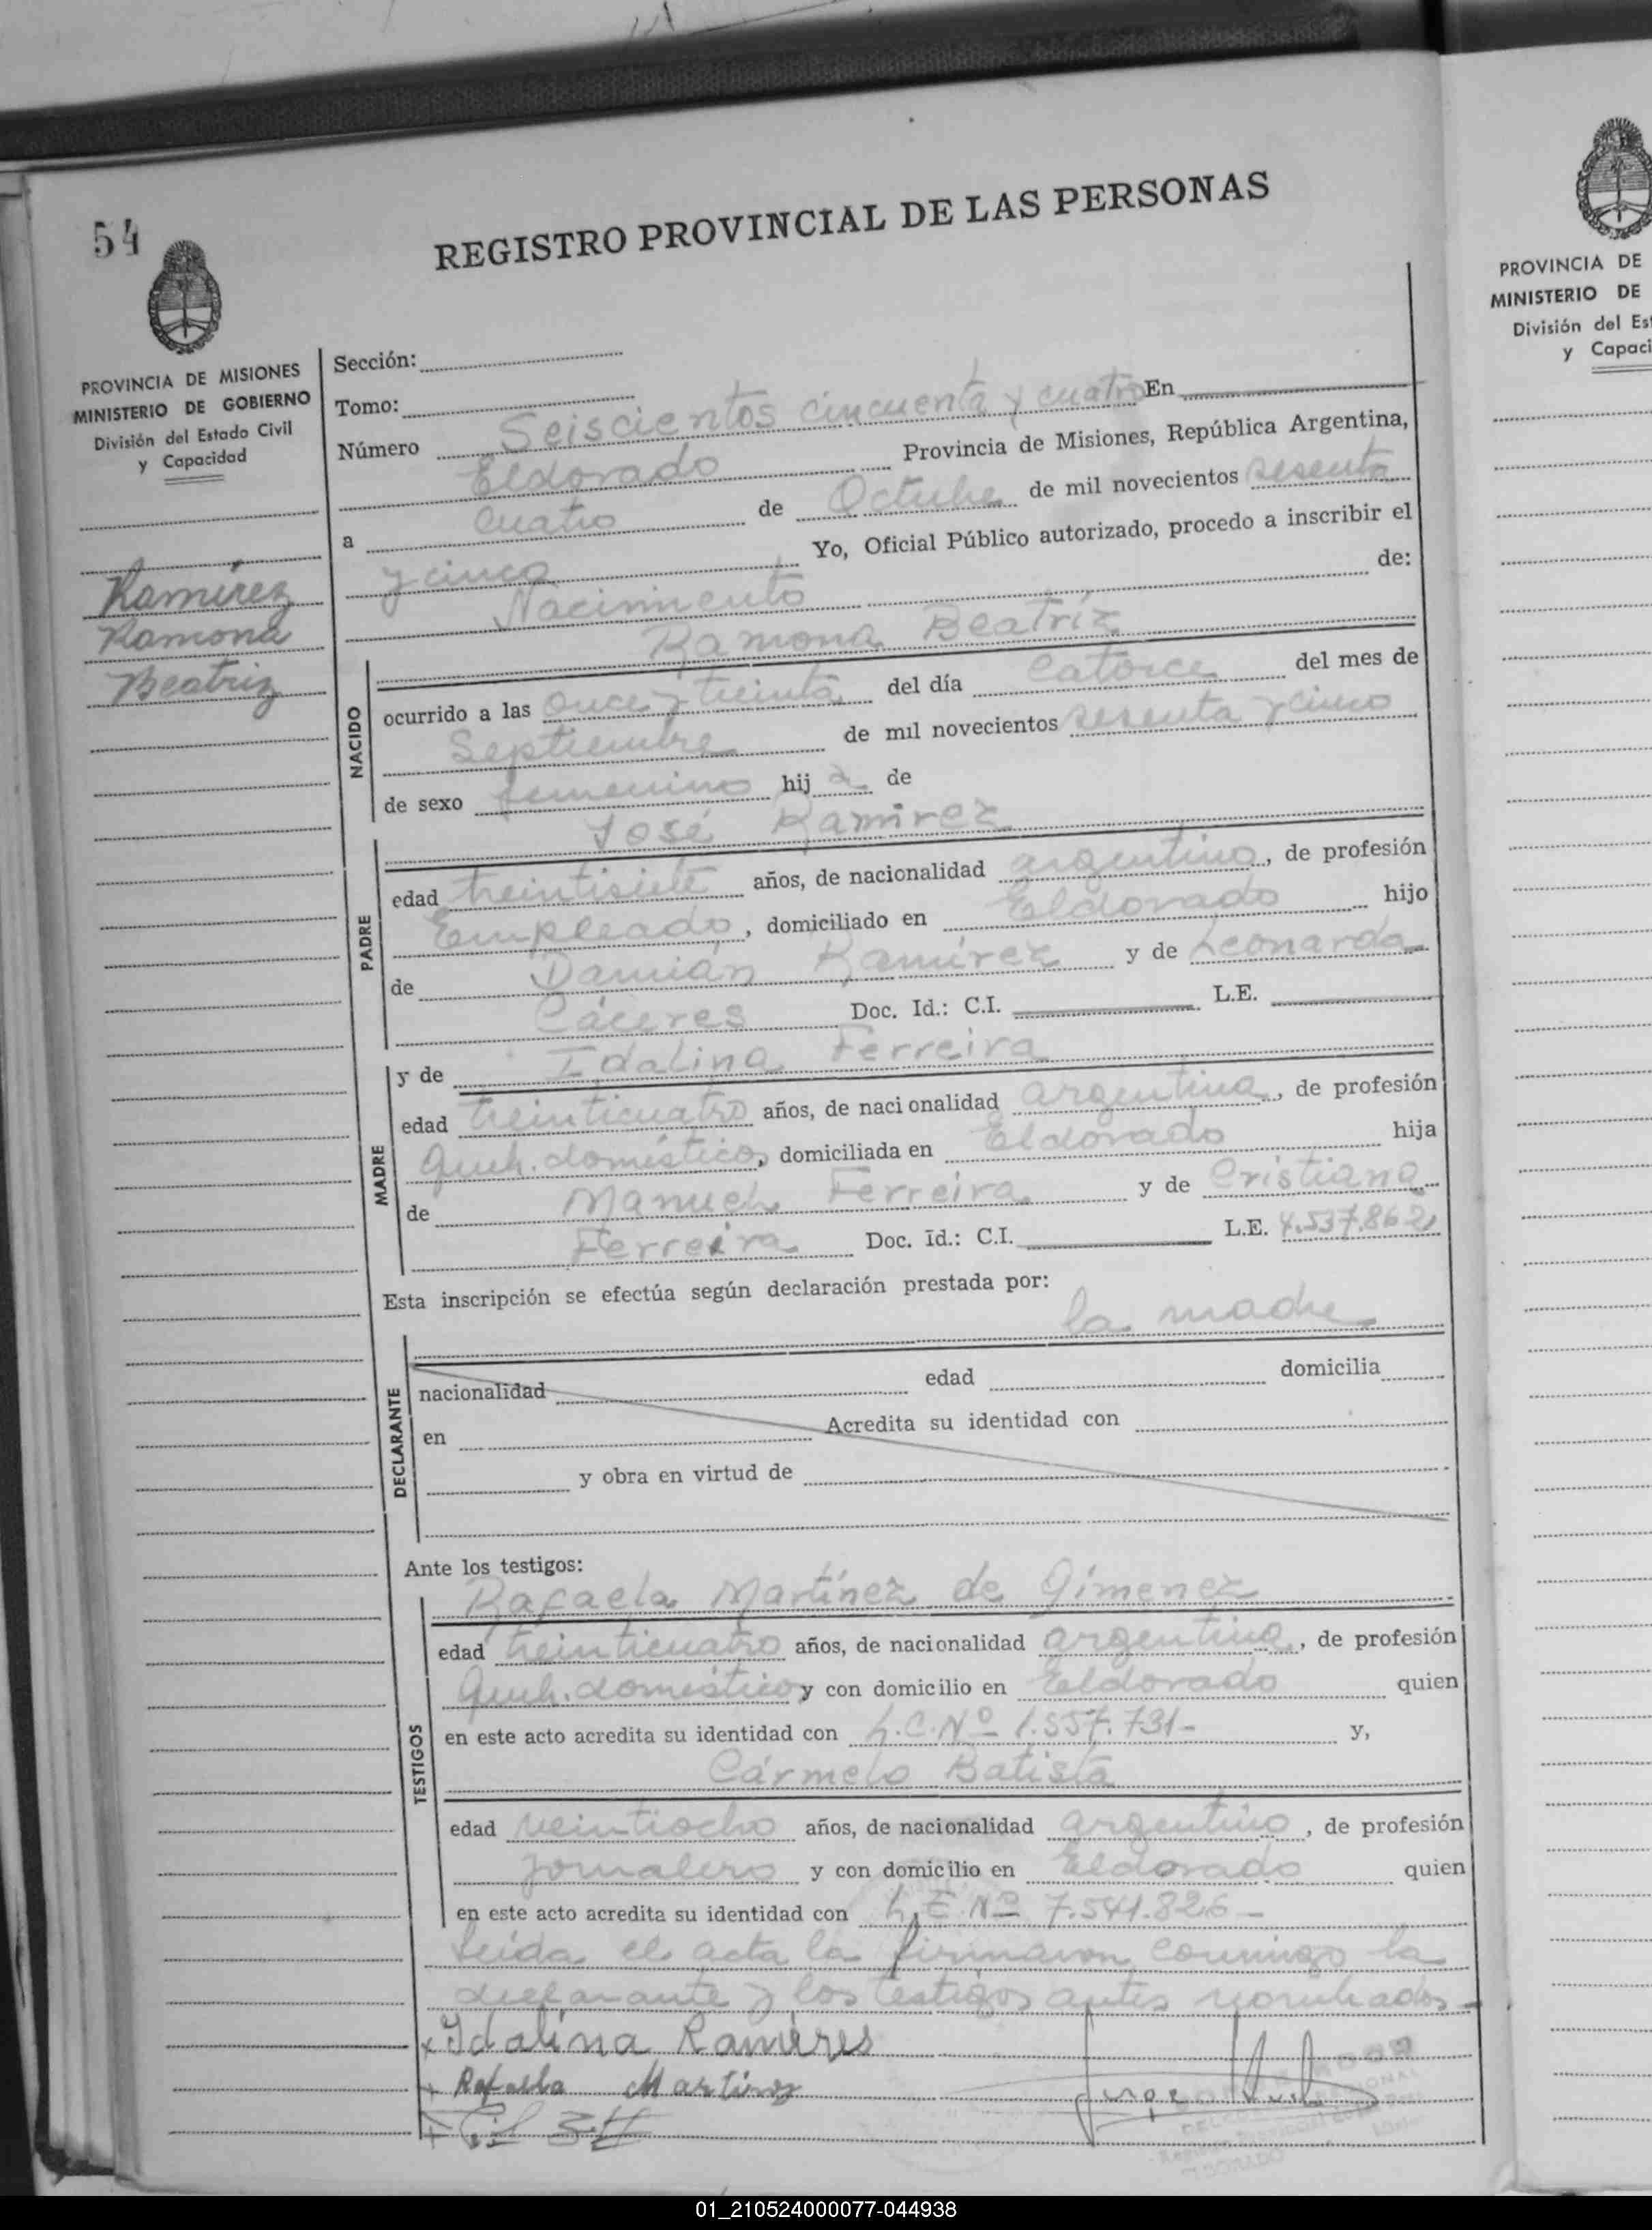 54
REGISTRO PROVINCIAL DE LAS PERSONAS
PROVINCIA DE MISIONES
MINISTERIO DE GOBIERNO
División del Estado Civil
y Capacidad
Ramírez
Ramona
Beatriz
Sección:
Tomo:
Número Seiscientos cincuenta y cuatro En
Eldorado Provincia de Misiones, República Argentina,
a cuatro de Octubre de mil novecientos sesenta
y cinco Yo, Oficial Público autorizado, procedo a inscribir el
Nacimiento de:
Ramona Beatríz
NACIDO
ocurrido a las once y treinta del día catorce del mes de
Septiembre de mil novecientos sesenta y cinco
de sexo femenino hij a de
José Ramirez
PADRE
edad treintisiete años, de nacionalidad argentino, de profesión
Empleado, domiciliado en Eldorado hijo
de Damián Ramírez y de Leonarda
Cáceres Doc. Id.: C.I. L.E.
MADRE
y de Idalina Ferreira
edad treinticuatro años, de nacionalidad argentina, de profesión
Queh. domésticos, domiciliada en Eldorado hija
de Manuel Ferreira y de Cristiana
Ferreira Doc. Id.: C.I. L.E. 4.537.862
Esta inscripción se efectúa según declaración prestada por:
la madre
DECLARANTE
nacionalidad edad domicilia
en Acredita su identidad con
y obra en virtud de
Ante los testigos:
Rafaela Martínez de Gimenez
TESTIGOS
edad treinticuatro años, de nacionalidad argentina, de profesión
Queh. domésticos y con domicilio en Eldorado quien
en este acto acredita su identidad con L.C. Nº 1.557.731- y,
Cármelo Batista
edad veintiocho años, de nacionalidad argentino, de profesión
Jornalero y con domicilio en Eldorado quien
en este acto acredita su identidad con L.E. Nº 7.541.826-
Leída el acta la firmaron conmigo la
declarante y los testigos antes nombrados-
x Idalina Ramíres
+ Rafaela Martinez
ELDORADO
PROVINCIA DE
MINISTERIO DE
División del Es
y Capaci
01_210524000077-044938